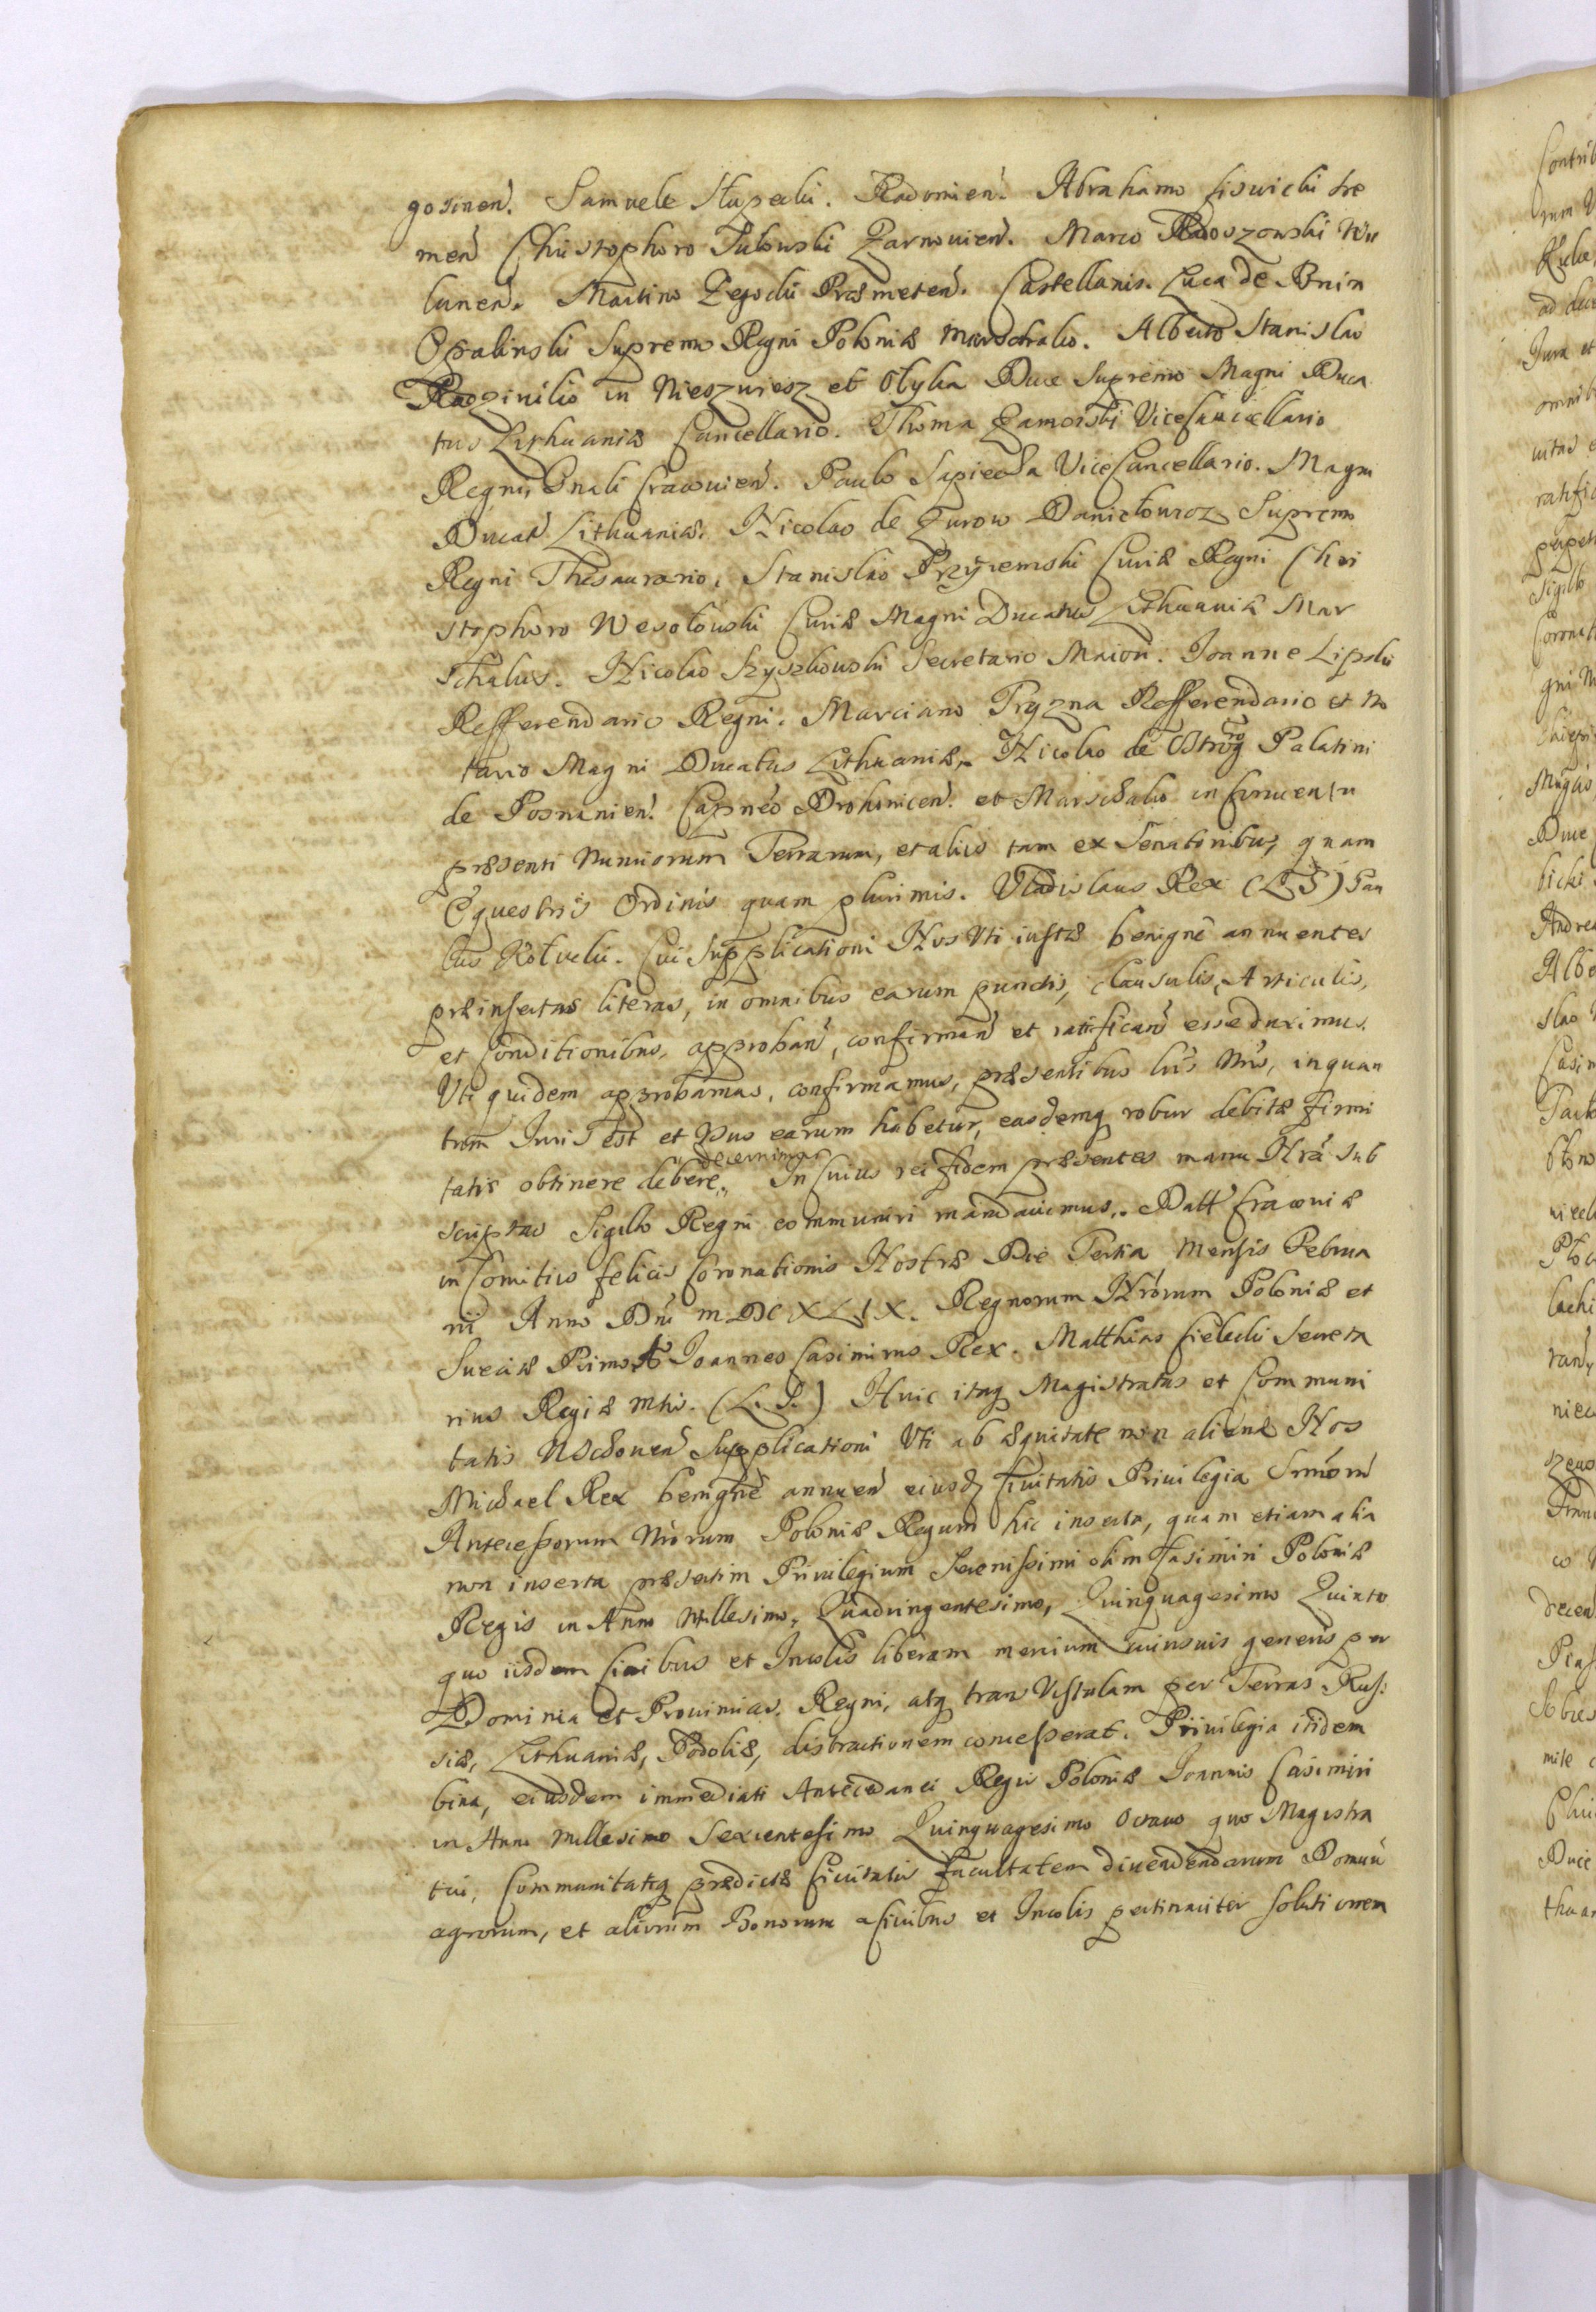 goscinen. Samuele Słupecki. Radomien. Abrahamo Ciswicki Sre
men Christophoro Sulowski Zarnovien. Marco Radoszowski Wie
lunen. Martino Zegocki Præmeten. Castellanis. Luca de Bnin
Opalinski Supremo Regni Poloniæ Marschalco. Alberto Stanislao
Radzivilio in Nieszwiesz et Olyka Duce Supremo Magni Duca
tus Lithuaniæ Cancellario. Thoma Zamoiski ViceCancellario
Regni, Gnali Cracovien. Paulo Sapiecha ViceCancellario. Magni
Ducat Lithuaniæ. Nicolao de Zurow Daniełowicz Supremo
Regni Thesaurario. Stanislao Przyiemski Curiæ Regni Chri
stophoro Wesołowski Curiæ Magni Ducatus Lithuaniæ Mar
schalcis. Nicolao Szyszkowski Secretario Maiori. Joanne Lipski
Refferendario Regni. Marciano Tryzna Refferendario et No
tario Magni Ducatus Lithuaniæ. Nicolao de Ostrorog Palatini
de Posnanien. Capneo Drohinicen. et Marschalco in Conventu
præsenti Nunciorum Terrarum, et aliis tam ex Senatoribus, quam
Equestris Ordinis quam plurimis. Vladislaus Rex (LS) Pau
lus Kołucki. Cui Supplicationi Nos Uti iustæ benigne annuentes
præinsertas literas, in omnibus earum punctis, clausulis, Articulis,
et Conditionibus, approban, confirman et ratifican esse duximus.
Uti quidem approbamus, confirmamus, præsentibus lris Nris, inquan
tum Juris est et usus earum habetur, easdemq robur debitæ firmi
tatis obtinere debere decernimus. In Cuius rei fidem præsentes manu Nra sub
scriptas Sigillo Regni communiri mandavimus. Datt Cracoviæ
in Comitiis felicis Coronationis Nostræ Die Tertia Mensis Februa
rii Anno Dni MDCXLIX. Regnorum Nrorum Poloniæ et
Sueciæ Primo Ao Joannes Casimirus Rex. Matthias Cielecki Secreta
rius Regiæ Mtis. (L. S.) Huic itaq Magistratus et Communi
tatis Wschoven Supplicationi Uti ab æquitate non alienæ Nos
Michael Rex benigne annuen eiusdz Civitatis Privilegia Srmorum
Antecessorum Nrorum Poloniæ Regum hic inserta, quam etiam alia
non inserta præsertim Privilegium Serenissimi olim Casimiri Poloniæ
Regis in Anno Millesimo, Quadringentesimo, Quinquagesimo Quinto
quo iisdem Civibus et Incolis liberam mercium cuiusvis generis per
Dominia et Provincias Regni, atq trans Vistulam per Terras Rus:
siæ, Lithuaniæ, Podoliæ, distractionem concesserat. Privilegia itidem
bina, eiusdem immediati Antecedanei Regis Poloniæ Joannis Casimiri
in Anno Millesimo Sexcentesimo Quinquagesimo Octavo quo Magistra
tui, Communitatiq prædictæ Civitatis facultatem divendendarum Domuum
agrorum, et aliorum Bonorum a Civibus et Incolis pertinaciter solutionem